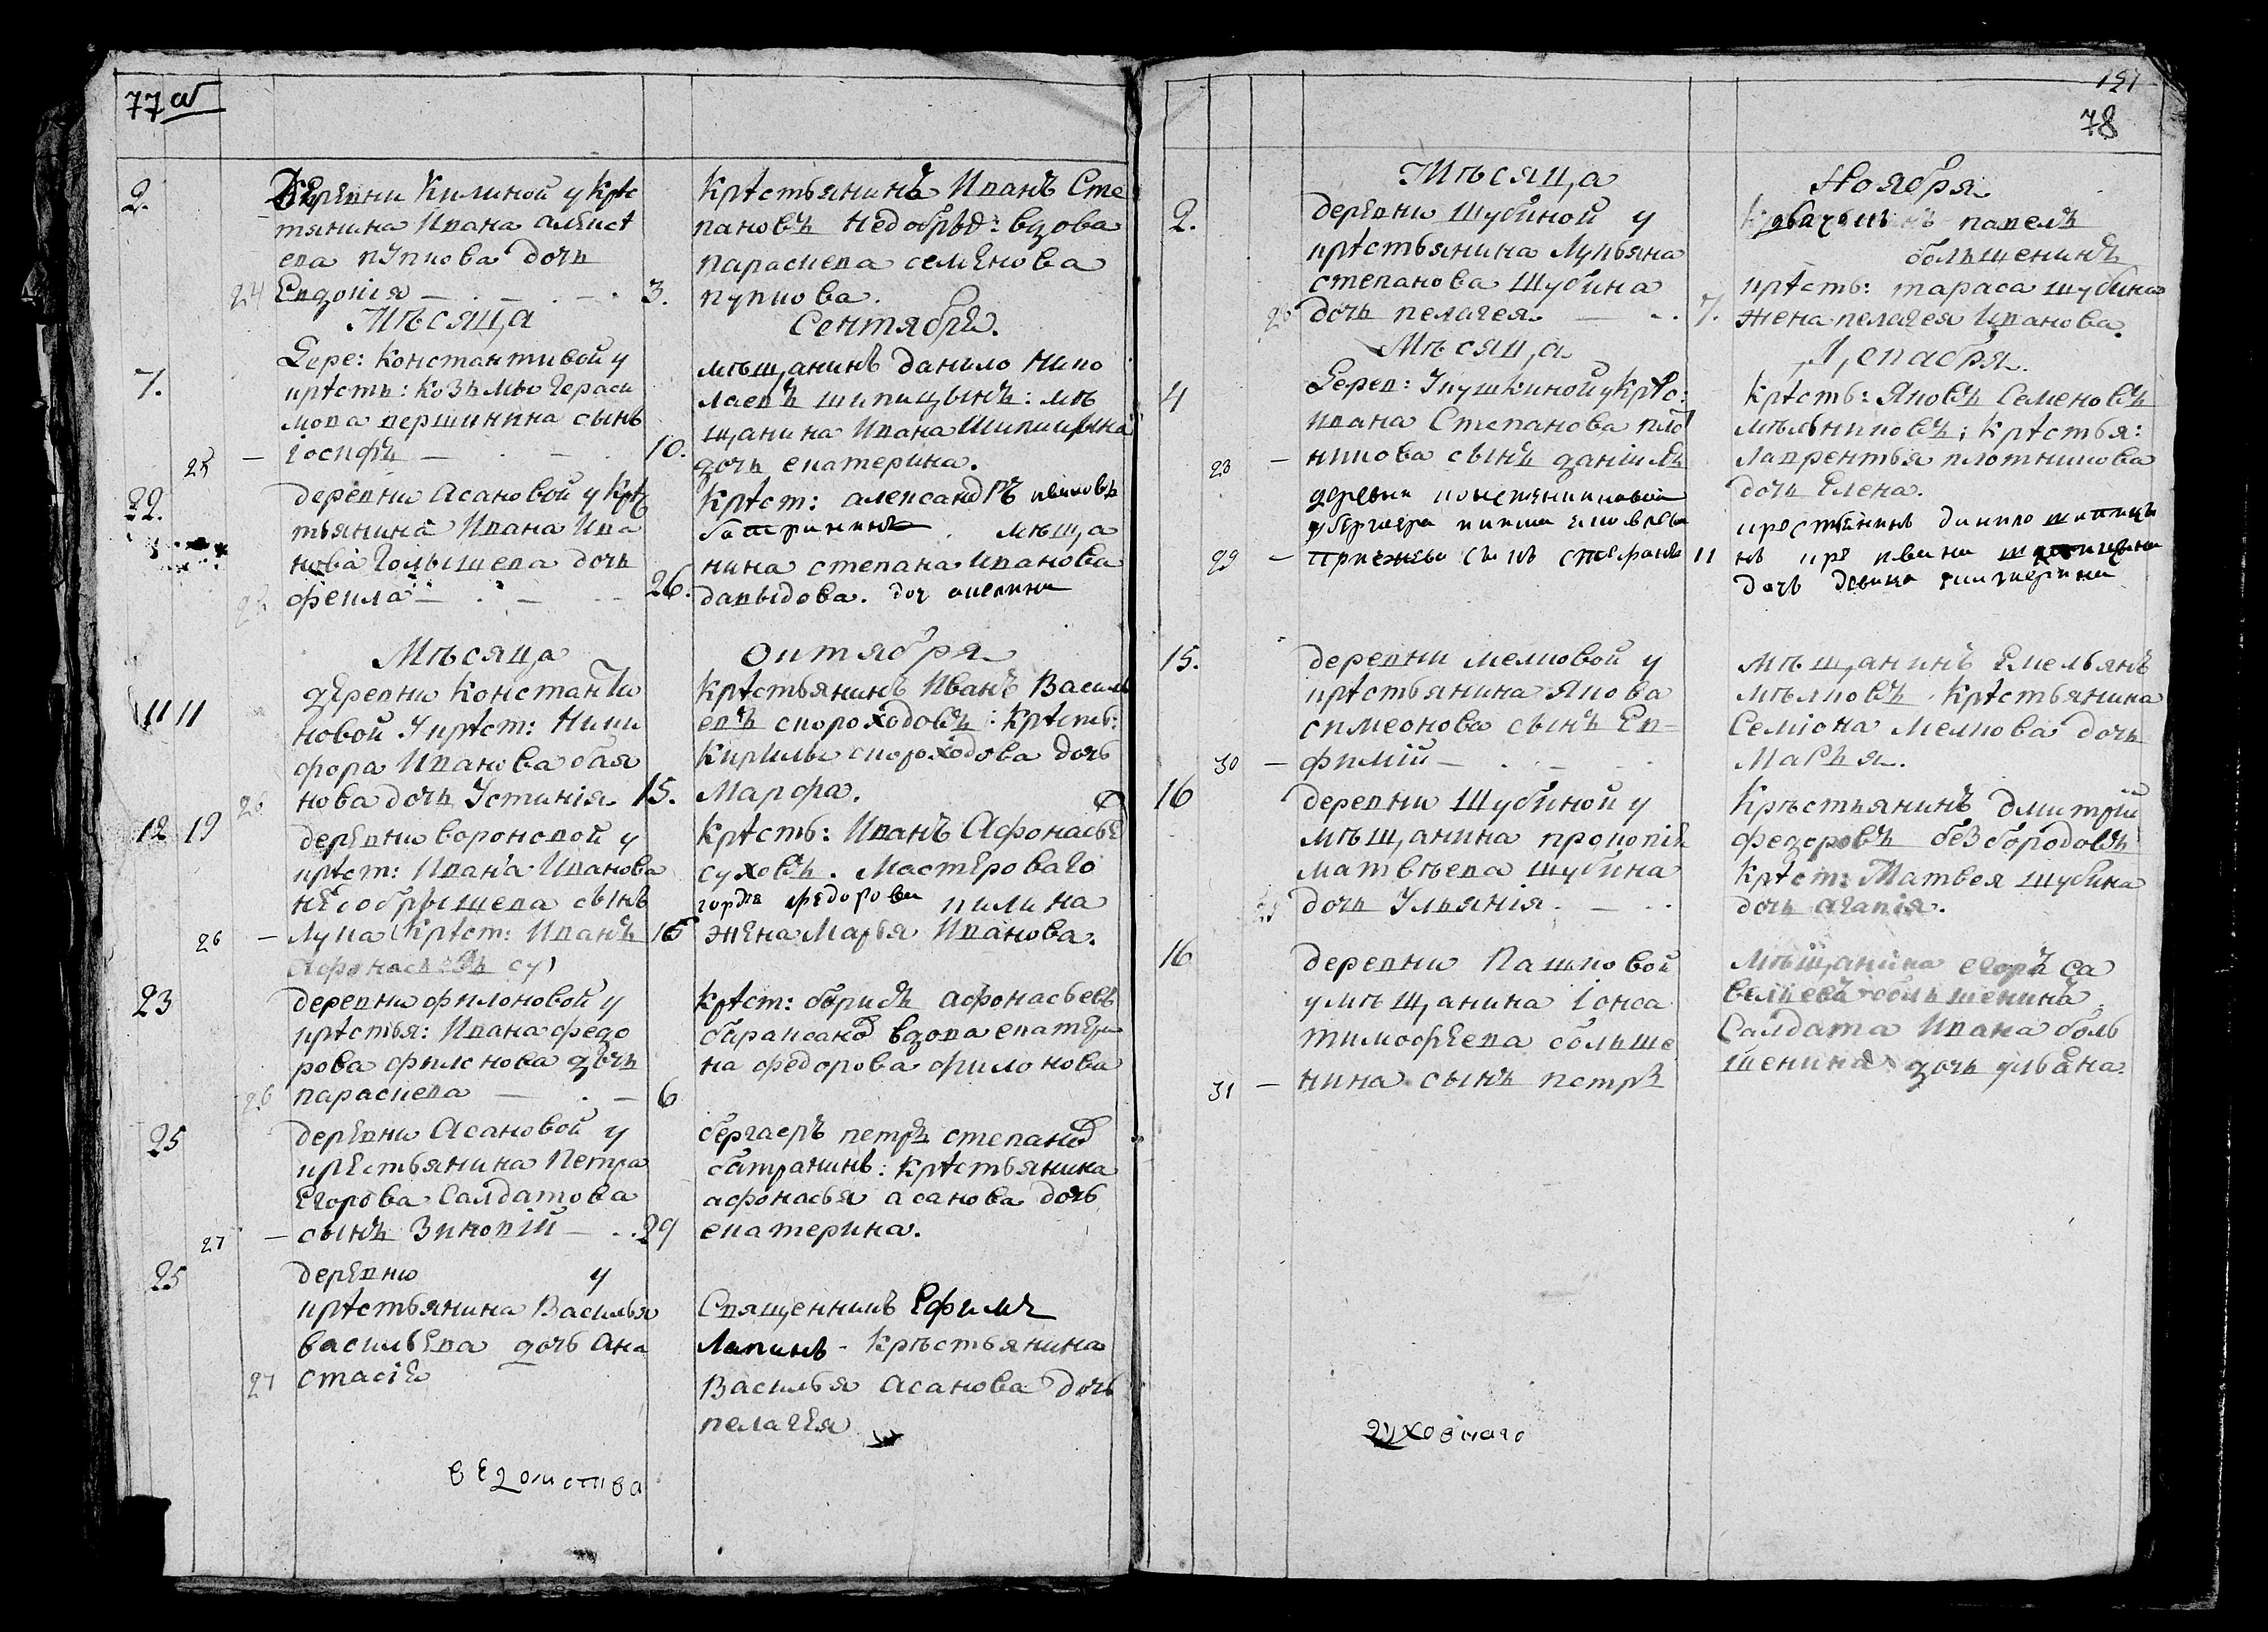 77 об
2.
деревни Килиной у крес
тянина Ивана алексе
ева пупкова дочь
24 Евдокия 3.
Мѣсяца
7.
Дере: Константиновой у
крѣсть: Козьмы Гераси
мова першинина сынъ
25 — іосифъ — 10.
22.
деревни Асановой у крѣ
тьянина Ивана Ива
нова Голышева дочь
фекла — 26.
Мѣсяца
11 11
деревни Константи
новой У крѣст: Ники
фора Иванова бая
26 нова дочь Устинія. 15.
12 19
деревни воронской у
крѣст: Ивана Иванова
сынъ
26 — Лука Крѣст: Иванъ 16
23
деревни филоновой у
крѣстья: Ивана федо
рова филонова дочь
26 параскева — 6
25
деревни Асановой у
крестьянина Петра
Егорова Салдатова
27 — сынъ Зиновій — 29
25
деревни у
крѣстьянина Василья
васильева дочь Ана
27 стасіе
Крѣстьянинъ Иванъ Сте
пановъ Недобрѣ: вдова
параскева семенова
пупкова.
Сентября.
мѣщанинъ данило Нико
лаевъ шипицынъ: мѣ
щанина Ивана Шипицына
дочь екатерина.
Крѣст: александръ
мѣща
нина степана Иванова
давыдова.
октября
Крѣстьянинъ Иванъ Василь
евъ скороходовъ: крѣсть:
Кирилы скороходова дочь
Марфа.
Крѣсть: Иванъ Афонасье
суховъ. Мастероваго
федорова килина
жена Марья Иванова.
крѣст: борисъ афонасьевъ
вдова екатери
на федорова филонова
бергаеръ петръ степанов
батранинъ: крѣстьянина
афонасья асанова дочь
екатерина.
Священникъ Ефимъ
Лапинъ - Крѣстьянина
Василья Асанова дочь
пелагея
вѣдомства
151
78
Мѣсяца
2.
деревни Шубиной у
крѣстьянина Лукьяна
степанова Шубина
26 дочь пелагея. — 7.
Мѣсяца
4
крѣс:
Ивана Степанова пло
никова сынъ данілъ
29 — сынъ стефанъ 11
15.
деревни мелковой у
крѣстьянина Якова
симеонова сынъ Ев=
30 — фимій —
16
деревни Шубиной у
мѣщанина прокопія
матвѣева шубина
дочь Ульянія.
16
деревни Пашковой
у мѣщанина іонса
тимофеева больше
31 — нина сынъ петръ
духовнаго
Ноября
павелъ
большенинъ
крѣсть: тараса шубина
жена пелагея Иванова.
Декабря.
Крѣсть: Яковъ Семеновъ
мѣльниковъ: Крѣстья:
лаврентья плотникова
дочь Елена.
данило
дочь девица екатерина
мѣщанинъ Емельянъ
мѣлковъ Крѣстьянина
Семіона мелкова дочь
Марья.
Крѣстьянинъ дмитрій
федоровъ безбородовъ
Крѣст: Матвея шубина
дочь агапія.
Мѣщанина егоръ са
большенинъ
Салдата Ивана боль
шенина дочь уліяна.